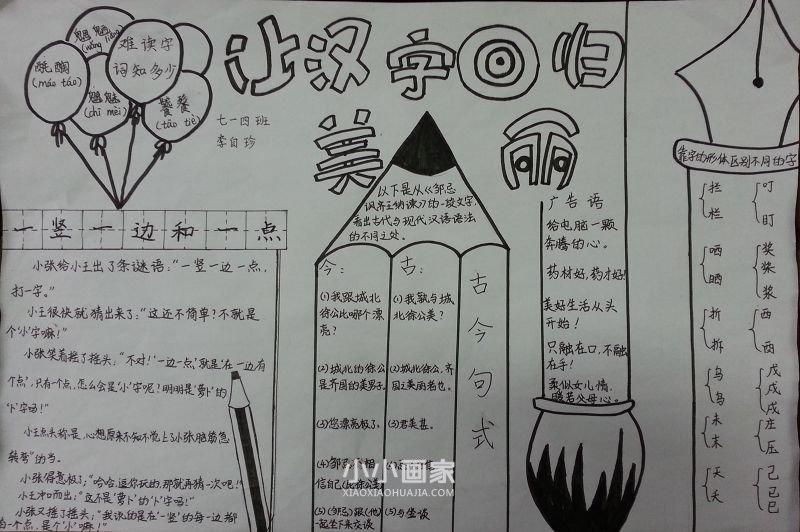 让汉字回归
美丽
难读字
词知多少
魍魉
(wǎng liǎng)
酕醄
(máo táo)
魑魅
(chī mèi)
饕餮
(tāo tiè)
七一四班
李自珍
一竖一边和一点
小张给小王出了条谜语:“一竖一边一点,
打一字。”
小王很快就猜出来了:“这还不简单?不就是
个‘小’字嘛!”
小张笑着摇了摇头:“不对!‘一边一点’就是‘在一边有
个点’,只有一个点,怎么会是‘小’字呢?明明是‘萝卜’的
‘卜’字吗!”
小王点头称是,心想原来不知不觉上了小张脑筋急
转弯”的当。
小张得意极了:“哈哈,逗你玩的,那就再猜一次吧!”
小王冲口而出:“这不是‘萝卜’的‘卜’字吗!”
小张又摇了摇头:“我说的是在‘一竖’的每一边都
加一个点,是个‘小’嘛!”
以下是从《邹忌
讽齐王纳谏》的一段文字
看出古代与现代汉语语法
的不同之处。
今:
(1)我跟城北
徐公比哪个漂
亮?
(2)城北的徐公
是齐国的美男子。
(3)您漂亮极了。
(4)邹忌
相
信自己
比徐公美
(5)(邹忌)跟(他)
一起坐下来交谈
古:
(1)我孰与城
北徐公美?
(2)城北徐公,齐
国之美丽者也。
(3)君美甚。
(5)与坐谈
古今句式
广告语
给电脑一颗
奔腾的心。
药材好,药才好!
美好生活从头
开始!
只融在口,不融
在手!
柔似女儿情,
暖若父母心。
靠字的形体区别不同的字
拦
栏
叮
盯
哂
晒
奖
桨
浆
折
拆
西
乌
鸟
戊
戌
戍
未
末
庄
压
天
夭
己
已
巳
小小画家
XIAOXIAOHUAJIA.COM